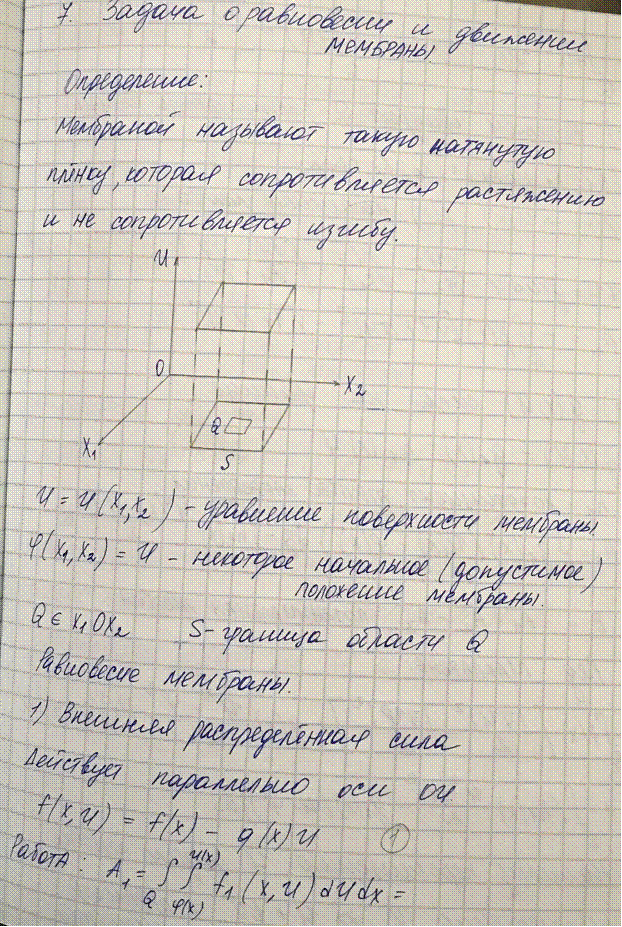 7. Задача о равновесии и движении
МЕМБРАНЫ
Определение:
Мембраной называют такую натянутую
плёнку, которая сопротивляется растяжению
и не сопротивляется изгибу.
U
O
X₂
Q
X₁
S
U = U(x₁,x₂) - уравнение поверхности мембраны.
φ(x₁,x₂) = U - некоторое начальное (допустимое)
положение мембраны.
Q ∈ x₁Ox₂ S - граница области Q
Равновесие мембраны.
1) Внешняя распределённая сила
действует параллельно оси OU.
f(x,U) = f(x) - q(x)U (1)
Работа: A₁ = ∫_Q ∫_{φ(x)}^{U(x)} f₁(x,U) dU dx =